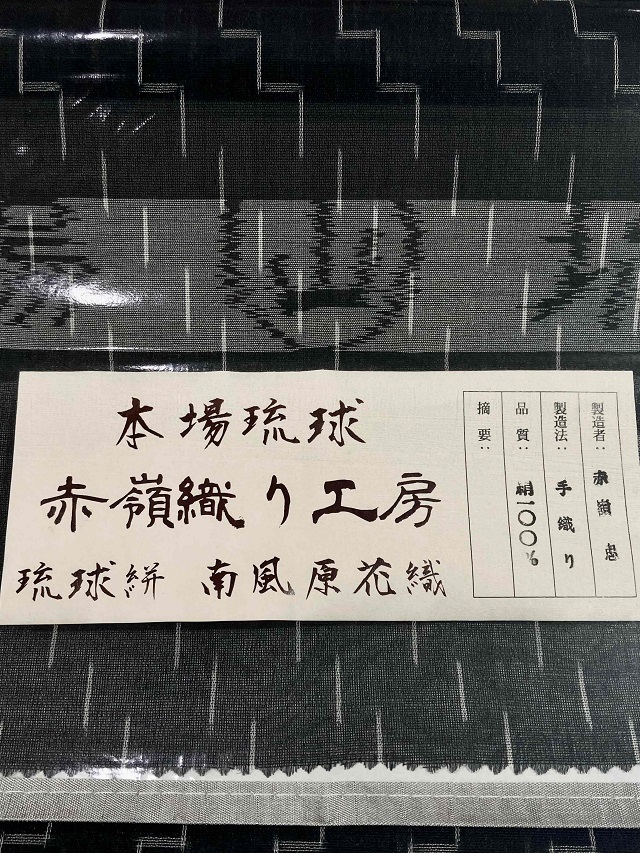 本場琉球
赤嶺織り工房
琉球絣 南風原花織
製造者： 赤嶺 忠
製造法： 手織り
品質： 絹一〇〇%
摘要：